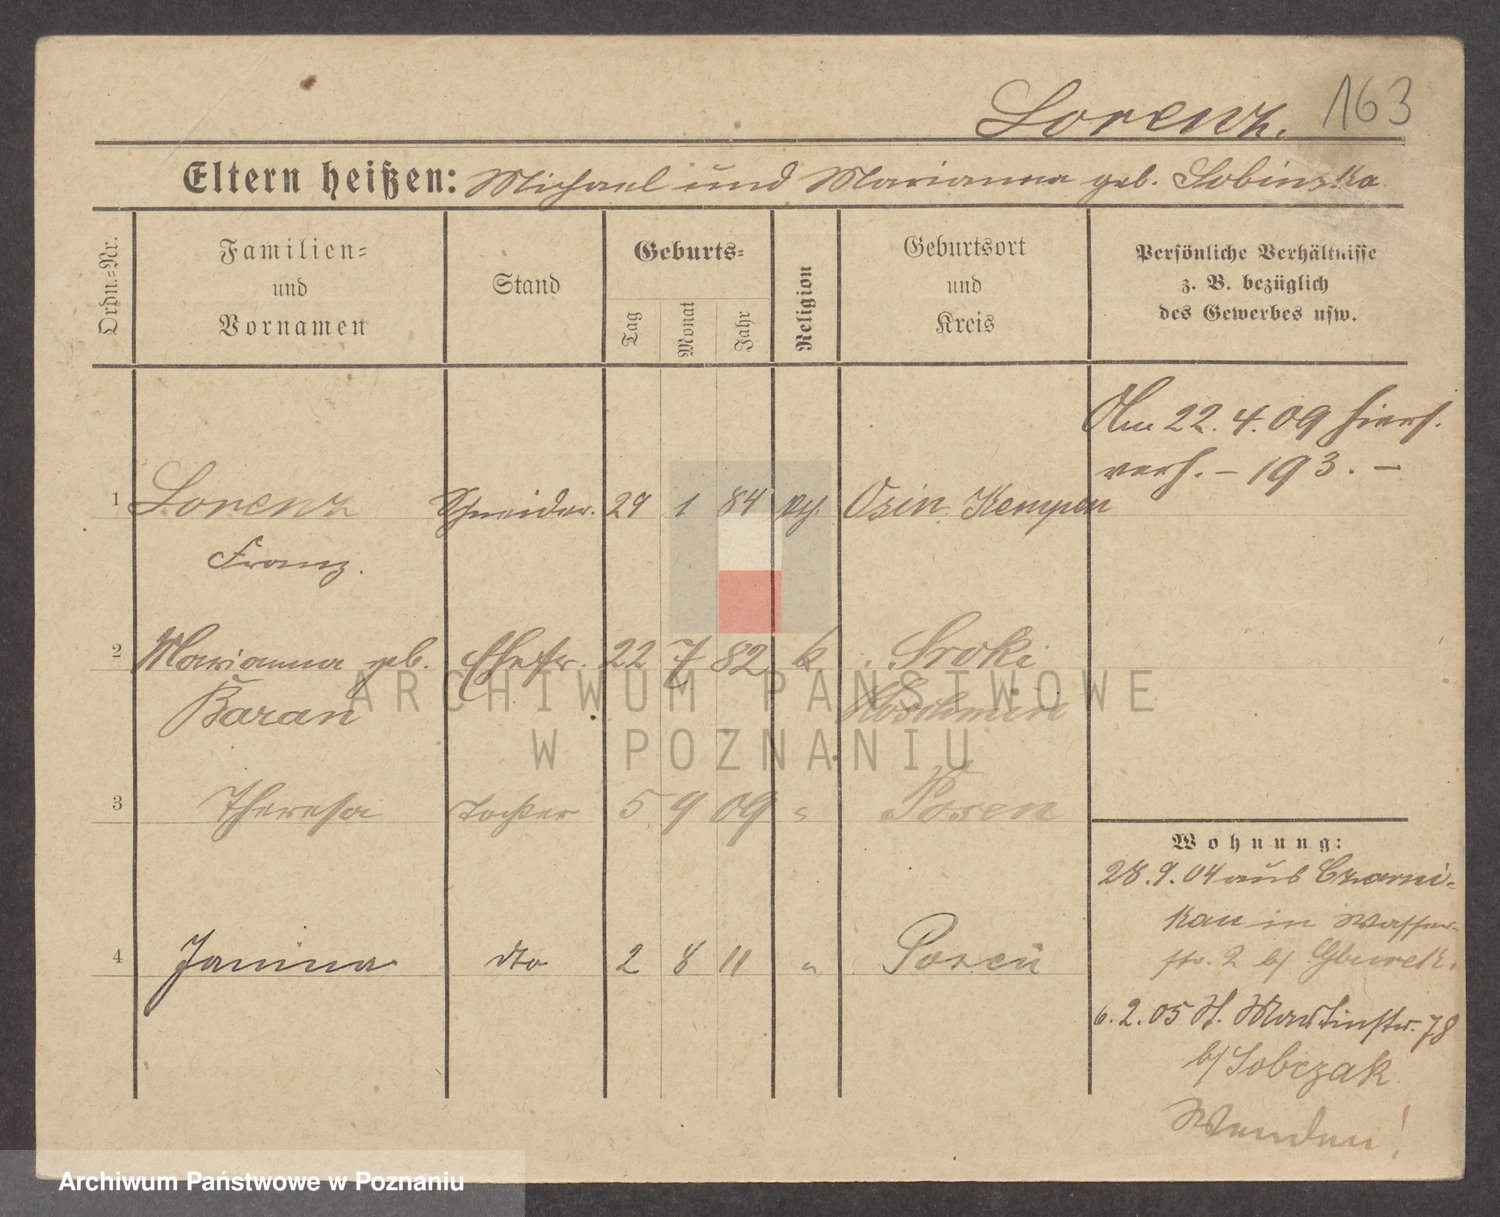 Lorenz.
163
Eltern heißen: Michael und Marianna geb. Sobinska
Ordn.-Nr.
Familien-
und
Vornamen
Stand
Geburts-
Tag
Monat
Jahr
Religion
Geburtsort
und
Kreis
Persönliche Verhältnisse
z. B. bezüglich
des Gewerbes usw.
Am 22.4.09 hiers.
verh. – 193. –
1 Lorenz Schneider. 29 1 84 kth. Osin Kempen
Franz.
2 Marianna geb. Ehefr. 22 7 82 k Sroki
Baran Koschmin
3 Theresa Tochter 5 9 09 " Posen
4 Janina dto 2 8 11 " Posen
Wohnung:
28.9.04 aus Czarni-
kau in Wasser-
str. 2 b/ Gburek.
6.2.05 St. Martinstr. 78
b/ Sobczak
Wenden!
ARCHIWUM PAŃSTWOWE
W POZNANIU
Archiwum Państwowe w Poznaniu